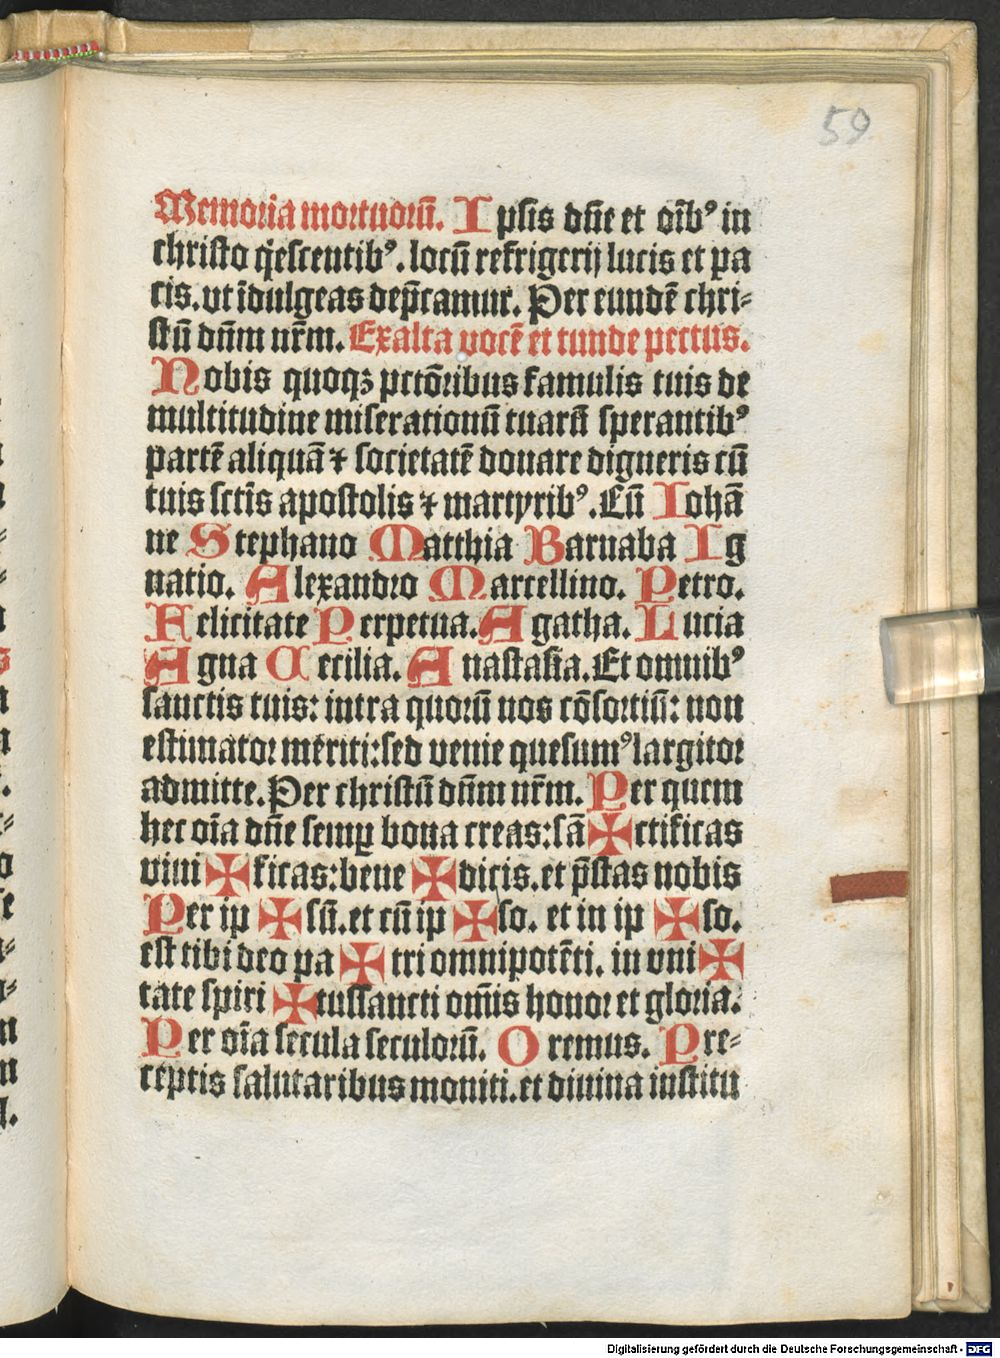 59
Memoria mortuorū. Ipsis dn̄e et oīb⁹ in
christo q̇escentib⁹. locū refrigerij lucis et pa
cis. vt īdulgeas dep̄camur. Per eundē chri⸗
stū dn̄m nr̄m. Exalta vocē et tunde pectus.
Nobis quoqꝫ pctōribus famulis tuis de
multitudine miserationū tuarū sperantib⁹
partē aliquā ⁊ societatē donare digneris cū
tuis sctīs apostolis ⁊ martyrib⁹. Cū Iohā
ne Stephano Matthia Barnaba Ig
natio. Alexandro Marcellino. Petro.
Felicitate Perpetua. Agatha. Lucia
Agna Cecilia. Anastasia. Et omnib⁹
sanctis tuis: intra quorū nos cōsortiū: non
estimator meriti: sed venie quesum⁹ largitor
admitte. Per christū dn̄m nr̄m. Per quem
hec oīa dn̄e semꝑ bona creas: sā ✠ ctificas
viui ✠ ficas: bene ✠ dicis. et p̄stas nobis
Per ip ✠ sū. et cū ip ✠ so. et in ip ✠ so.
est tibi deo pa ✠ tri omnipotēti. in vni ✠
tate spiri ✠ tussancti om̄is honor et gloria.
Per oīa secula seculorū. Oremus. Pre⸗
ceptis salutaribus moniti. et diuina institu
Digitalisierung gefördert durch die Deutsche Forschungsgemeinschaft - DFG